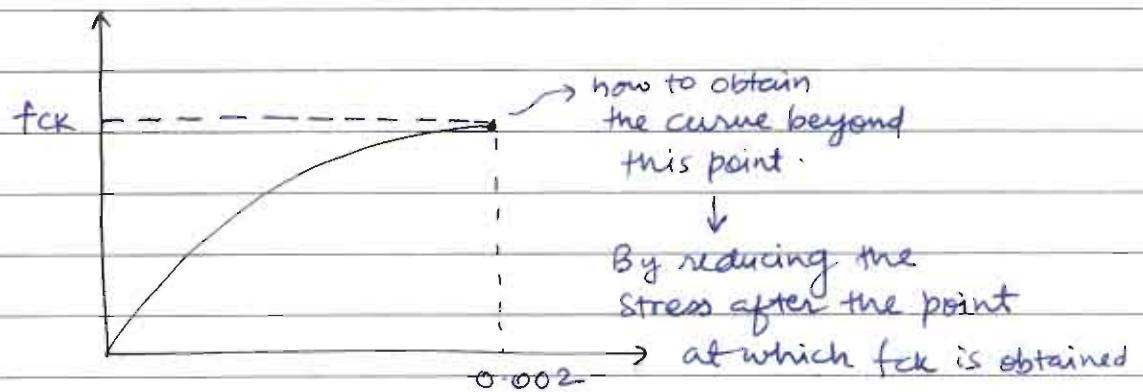 how to obtain
fck
the curve beyond
this point.
By reducing the
stress after the point
at which fck is obtained
0.002